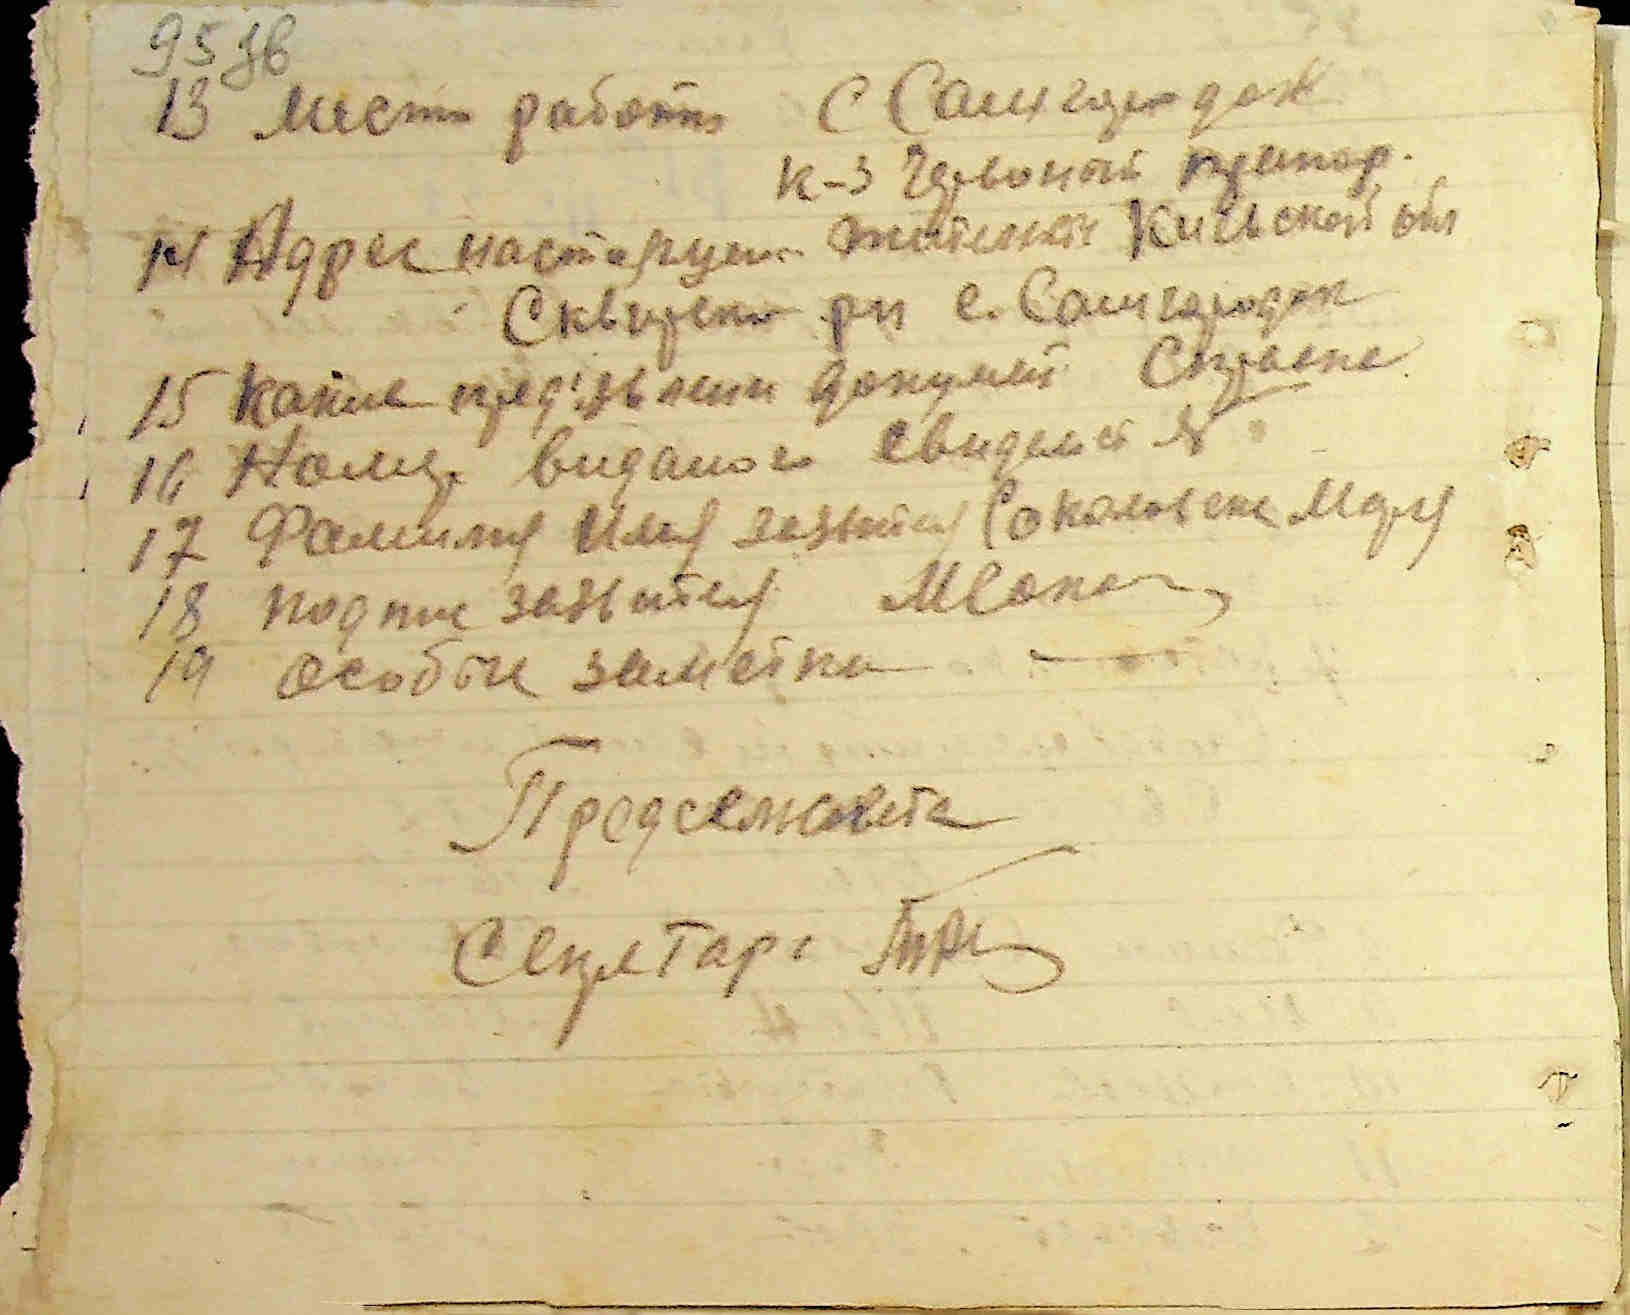 95 зв
13 Место работы с Самгородок
к-з Червоный прапор.
14 Адрес настоящего жительст Киевской обл
Сквирско рн с. Самгородок
15 Какие пред'явлени документ Справка
16 Номер виданого свидет №
17 Фамилия Имя заявителя Соколовска Мария
18 подпис заявителя МСоко
19 особые заметки —
Предсельсовета
Секретарь